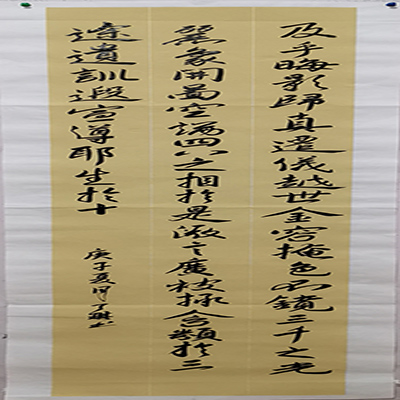 及乎晦影歸真遷儀越世金容掩色不鏡三千之光
麗象開圖空端四八之相於是微言廣被拯含類於三
途遺訓遐宣導生於十
庚子夏月丁書